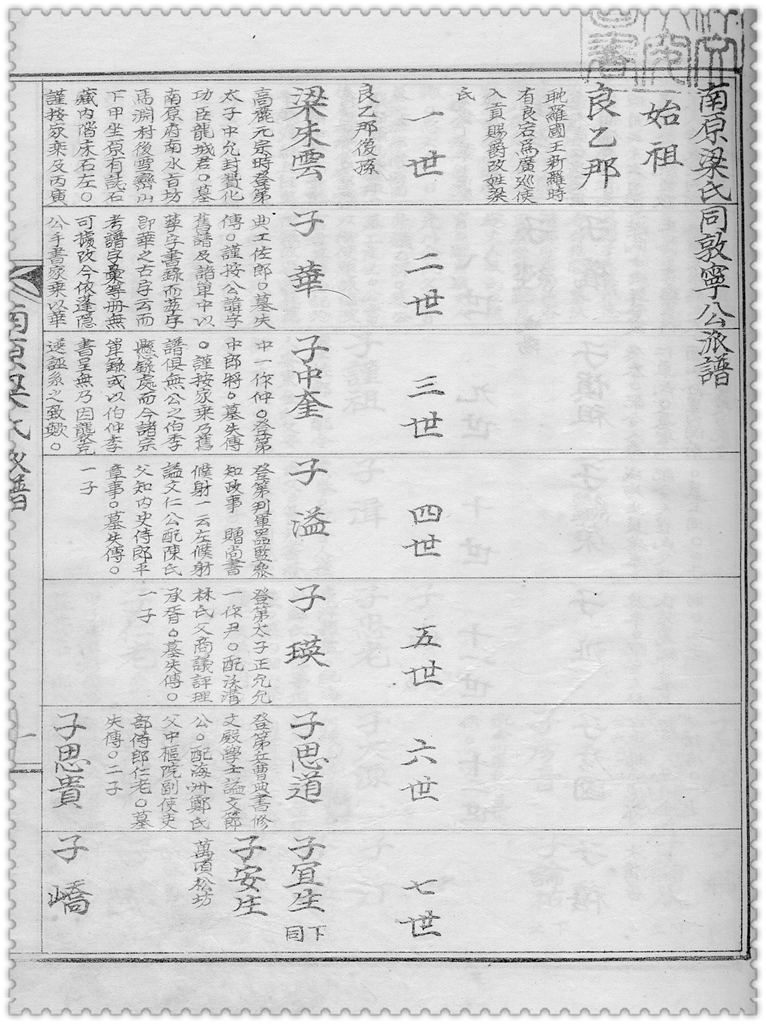 南原梁氏同敦寧公派譜
始祖
良乙那
耽羅國王新羅時
有良宕為廣巡使
入貢賜爵改姓梁
氏
一世
良乙那後孫
梁朱雲
高麗元宗時登第
太子中允封贊化
功臣龍城君○墓
南原府南水旨坊
馬淵村後
下甲坐原有誌石
藏內階床石左○
謹按家乘及丙寅
二世
子 華
典工佐郎○墓失
傳○謹按公諱字
舊譜及諸單中以
字書錄而 字
卽華之古字云而
考譜字彙等冊無
可據改今依蓬隱
公手書家乘以華
三世
子中奎
中一作仲○登第
中郎將○墓失傳
○謹按家乘乃舊
譜俱無公之伯季
懸錄處而今諸宗
單錄或以伯仲季
書呈無乃因襲
誣系之致歟○
四世
子 溢
登第判軍器監叅
知政事 贈尚書
僕射一云左僕射
謚文仁公配陳氏
父知內史侍郎平
章事○墓失傳○
一子
五世
子 瑛
登第太子正允允
一作尹○配沃溝
林氏父商議評理
承胥○墓失傳○
一子
六世
子思道
登第兵曹典書修
文殿學士謚文節
公○配海州鄭氏
父中樞院副使吏
部侍郎仁老○墓
失傳○二子
子思貴
七世
子宜生 下同
子安生
萬頃松坊
子 嶠
南原梁氏派譜
一